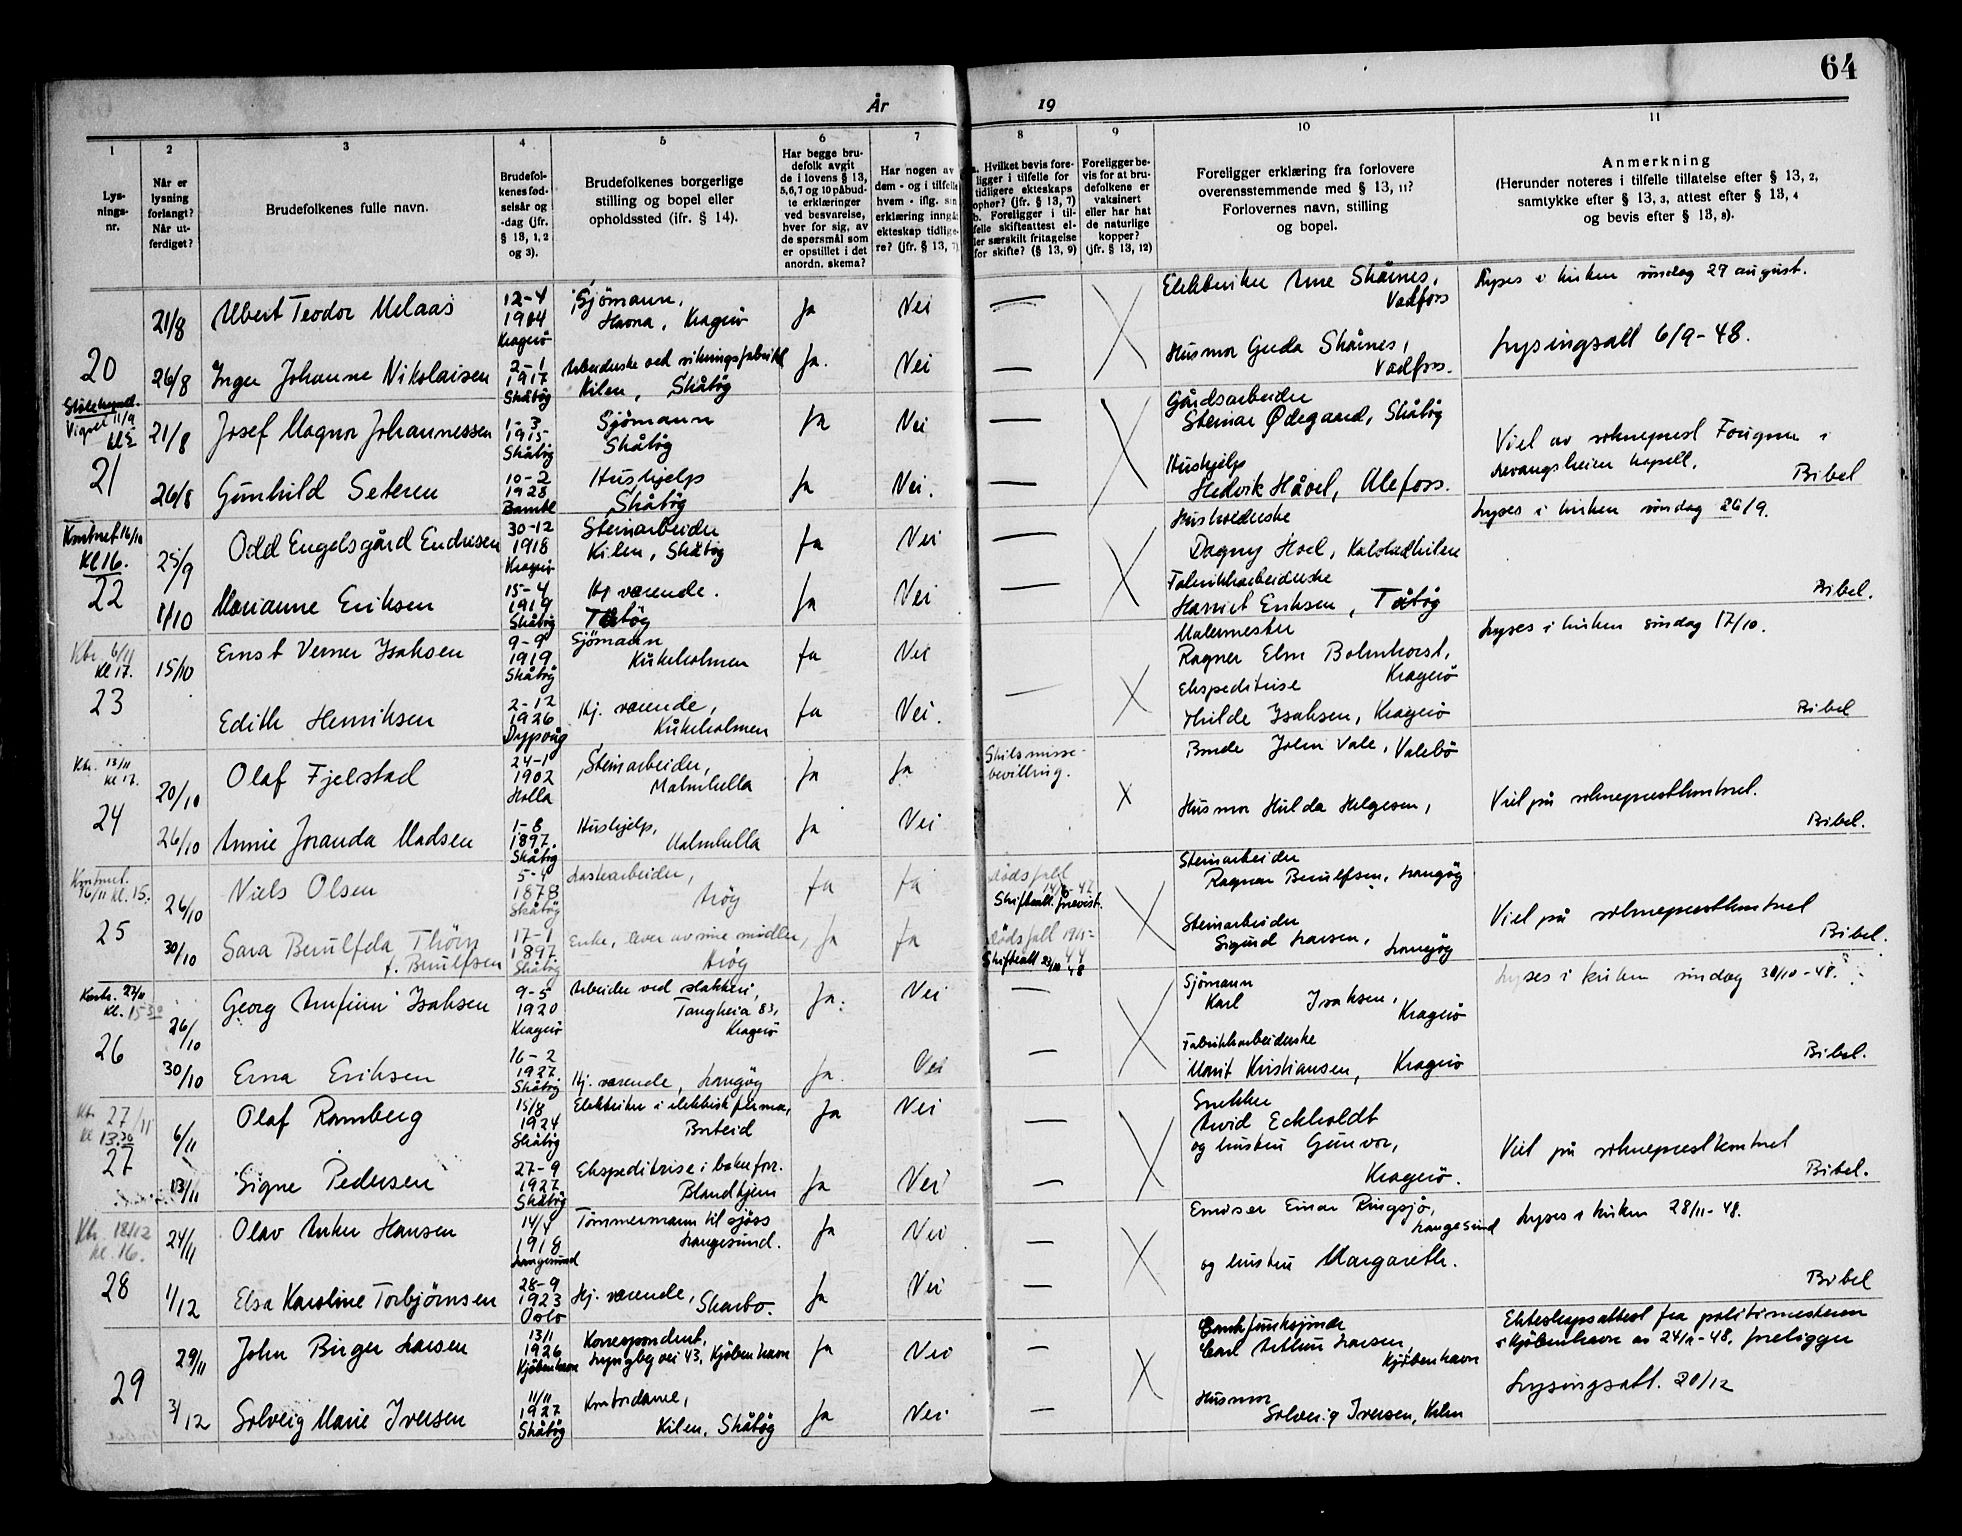 64
År 19
1 2 3 4 5 6 7 8 9 10 11
Lys-
nings-
nr.
Når er
lysning
forlangt?
Når ut-
ferdiget?
Brudefolkenes fulle navn.
Brudefol-
kenes fød-
selsår og
-dag (jfr.
§ 13, 1, 2
og 3).
Brudefolkenes borgerlige
stilling og bopel eller
opholdssted (ifr. § 14).
Har begge bru-
defolk avgit
de i lovens § 13,
5,6,7 og 10 påbud-
te erklæringer
ved besvarelse,
hver for sig, av
de spørsmål som
er opstillet i det
anordn. skema?
Har nogen av
dem - og i tilfelle
hvem - iflg. sin
erklæring inngåt
ekteskap tidlige-
re? (jfr. § 13, 7)
a. Hvilket bevis fore-
ligger i tilfelle for
tidligere ekteskaps
ophør? (jfr. § 13, 7)
b. Foreligger i til-
felle skifteattest el-
ler særskilt fritagelse
for skifte? (§ 13, 9)
Foreligger be-
vis for at bru-
defolkene er
vaksinert
eller har hat
de naturlige
kopper?
(jfr. § 13, 12)
Foreligger erklæring fra forlovere
overensstemmende med § 13, 11?
Forlovernes navn, stilling
og bopel.
Anmerkning
(Herunder noteres i tilfelle tillatelse efter § 13, 2,
samtykke efter § 13, 3, attest efter § 13, 4
og bevis efter § 13, 8).
20
21/8 Albert Teodor Melaas
12-4
1904
Kragerö
Sjömann,
Havna, Kragerö
Ja Nei —
Arne Skårnes,
Vadfoss
Lyses i kirken söndag 29 august.
26/8 Inger Johanne Nikolaisen
2-1
1917
Skåtöy
Kilen, Skåtöy
Ja. Nei —
Husmor Guda Skårnes,
Vadfoss.
Lysingsatt 6/9-48.
Vigsel 11/9
21
21/8 Josef Magnor Johannessen
1-3
1915
Skåtöy
Sjömann
Skåtöy
Ja Nei —
Gårdsarbeider
Steinar Ødegaard, Skåtöy
Viet av sokneprest
kapell.
Bibel
26/8 Gunhild Seteren
10-2
1928
Bamble
Hushjelp
Skåtöy
Ja Nei. —
Hushjelp
Hedvik Håvel, Ulefoss.
Kontoret 16/10
Kl 16.
22
25/9 Odd Engelsgård Endresen
30-12
1918
Kragerö
Steinarbeider
Kilen, Skåtöy
Ja Nei —
Dagny Hoel, Kalstadkilen
Lyses i kirken söndag 26/9.
1/10 Marianne Eriksen
15-4
1919
Skåtöy
Hj. værende.
Tåtöy
Ja Nei —
Fabrikkarbeiderske
Harriet Eriksen, Tåtöy
Bibel.
Ktr. 6/11
Kl 17.
23
15/10 Ernst Verner Isaksen
9-9
1919
Skåtöy
Sjömann
Kirkeholmen
Ja Nei
Malermester
Ragner Elm Bolmhorst,
Kragerö
Lyses i kirken söndag 17/10.
Edith Henriksen
2-12
1926
Dypvåg
Hj. værende,
Kirkeholmen
Ja Nei. —
Ekspeditrise
Hilde Isaksen, Kragerö
Bibel
Ktr. 13/11
Kl 17.
24
20/10 Olaf Fjelstad
24-1
1902
Holla
Steinarbeider,
Malmhella
Ja Ja
Skilsmisse-
bevilling.
John Vale, Valebö
Viet på sokneprestkontoret.
26/10 Annie Joranda Madsen
1-8
1897.
Skåtöy
Hushjelp,
Malmhella
Ja Nei
Husmor Hulda Helgesen,
Bibel.
Kontoret
16/11 kl. 15.
25
26/10 Niels Olsen
5-4
1878
Skåtöy
Lastearbeider,
Aröy
Ja Ja
Dödsfall
14/6-47
Skifteatt. forevist.
Steinarbeider
Ragnar Berulfsen, Langöy
Viet på sokneprestkontoret
30/10 Sara Berulfda Thörn
f. Berulfsen
17-1
1897.
Skåtöy
Enke, lever av sine midler,
Aröy
Ja Ja
Dödsfall 19/5-
44
Skifteatt 23/10 48
Steinarbeider
Sigurd Larsen, Langöy
Bibel.
Kontr. 27/11
Kl. 15 30
26
26/10 Georg Arnfinn Isaksen
9-5
1920
Kragerö
Arbeider ved slakteri,
Tangheia 83,
Kragerö
Ja. Nei —
Sjömann
Karl Isaksen,
Kragerö
Lyses i kirken söndag 30/10-48.
30/10 Erna Eriksen
16-2
1927
Skåtöy
Hj. værende, Langöy
Ja. Nei —
Fabrikkarbeiderske
Marit Kristiansen, Kragerö
Bibel.
Ktr. 27/11
Kl 13.30
27
6/11 Olaf Romberg
15/8
1924
Skåtöy
Elektriker i elektrisk firma,
Ja Nei —
Snekker
Arvid Eckholdt
og hustru Gunvor,
Kragerö.
Viet på sokneprestkontoret
13/11 Signe Pedersen
27-9
1927
Skåtöy
Ekspeditrise i bakerforr.
Blandkjenn
Ja Nei —
Bibel.
Ktr. 18/12
Kl. 16.
28
24/11 Olav Anker Hansen
14/4
1918
Langesund
Tömmermann til sjöss
Langesund.
Ja Nei —
Einar Ringsjö,
Langesund
og hustru Margareth.
Lyses i kirken 28/11-48.
1/12 Elsa Karoline Torbjørnsen
28-9
1923
Oslo
Hj. værende, Skarbo.
Ja Nei —
Bibel
29
29/11 John Birger Larsen
13/11
1926
Kjöbenhavn
Korrespondent,
Lyngby vei 43, Kjöbenhavn
Ja Nei —
Carl Arthur Larsen,
Kjöbenhavn
Ekteskapsattest fra politimesteren
i Kjöbenhavn av 24/11-48. foreligger
3/12 Solveig Marie Iversen
11/11
1927
Skåtöy
Kontordame,
Kilen, Skåtöy
Ja Nei —
Husmor
Solveig Iversen, Kilen
Lysingsatt. 20/12